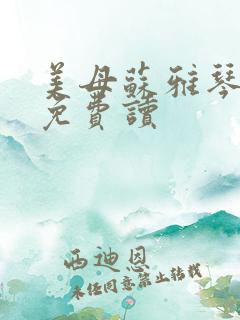 美母蘇雅琴
免費讀
西迪恩
未任同意禁止转载